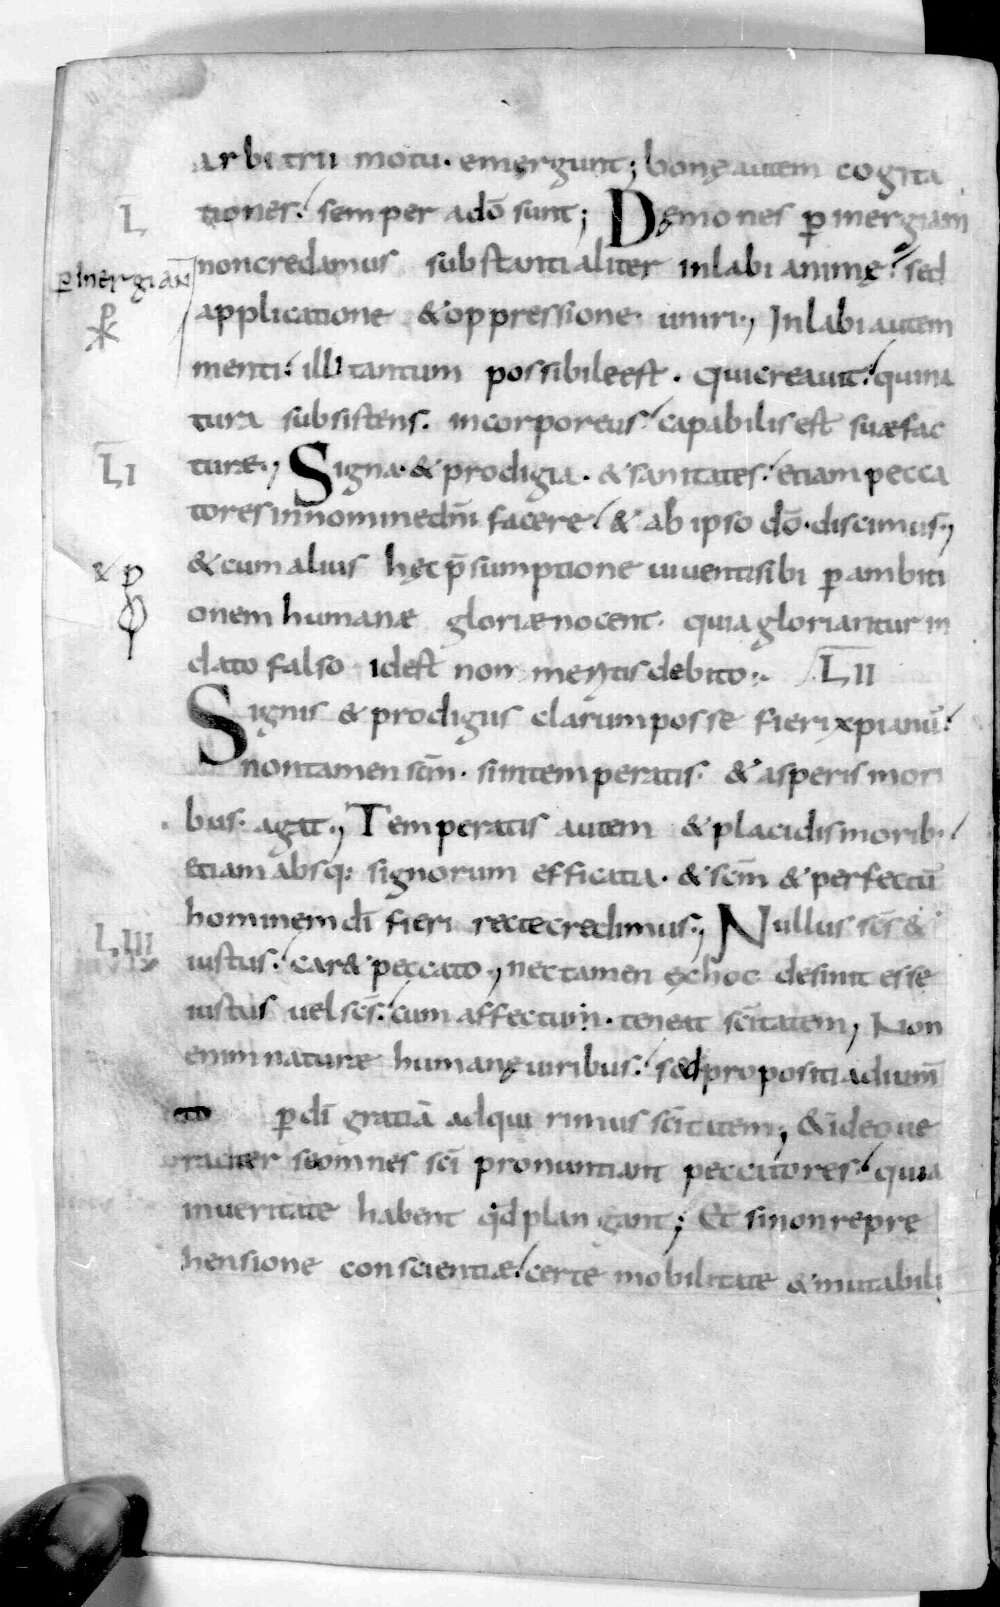 arbitrii motu. emergunt; bonę autem cogita
L
tiones. semper a dō sunt; Dęmones p̲ inergiam
p̲ inergiam̄
non credamus substantialiter inlabi animę. sed
applicatione & oppressione. uniri., Inlabi autem
menti. illi tantum possibile est. qui creauit. qui na
tura subsistens. incorporeus. capabilis est suae fac
LI
turae., Signa. & prodigia. & sanitates. etiam pecca
tores in nomine dn̄i facere. & ab ipso dō. discimus.,
& cum aliis hęc p̄sumptione uiuentis sibi p̲ ambiti
onem humanae gloriae nocent. quia gloriantur in
dato falso idest non meritis debito:. LII
Signis & prodigiis clarum posse fieri xpianū.
non tamen sc̄m. si intemperatis. & asperis mori
bus. agat., Temperatis autem & placidis morib.
etiam absq: signorum efficatia. & sc̄m & perfectū
hominem dī fieri recte credimus., Nullus sc̄s &
LIII
iustus. car& peccato., nec tamen ex hoc desinit esse
iustus uel sc̄s. cum affectum. teneat sc̄itatem, Non
enim naturae humanę uiribus. sed propositi adium̄
to p̲ dī gratiā adquirimus sc̄itatem., & ideo ue
raciter se omnes sc̄i pronuntiant peccatores. quia
in ueritate habent qd plangant; Et si non repre
hensione conscientiae. certe mobilitate & mutabili